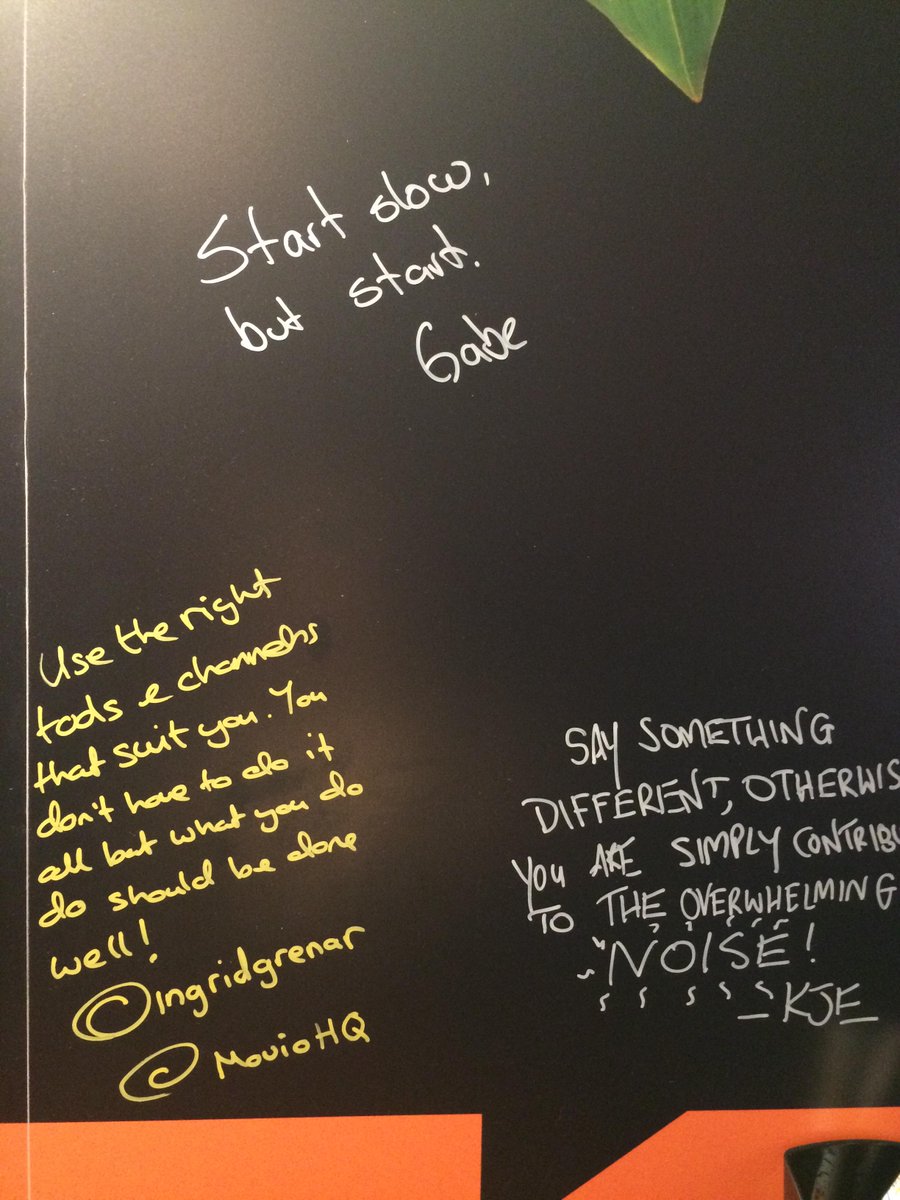 Start slow,
but start.
Gabe
Use the right
tools & channels
that suit you. You
don't have to do it
all but what you do
do should be done
well!
@Ingridgrenar
@MovioHQ
SAY SOMETHING
DIFFERENT, OTHERWIS
YOU ARE SIMPLY CONTRIBU
TO THE OVERWHELMING
NOISE!
- KJE